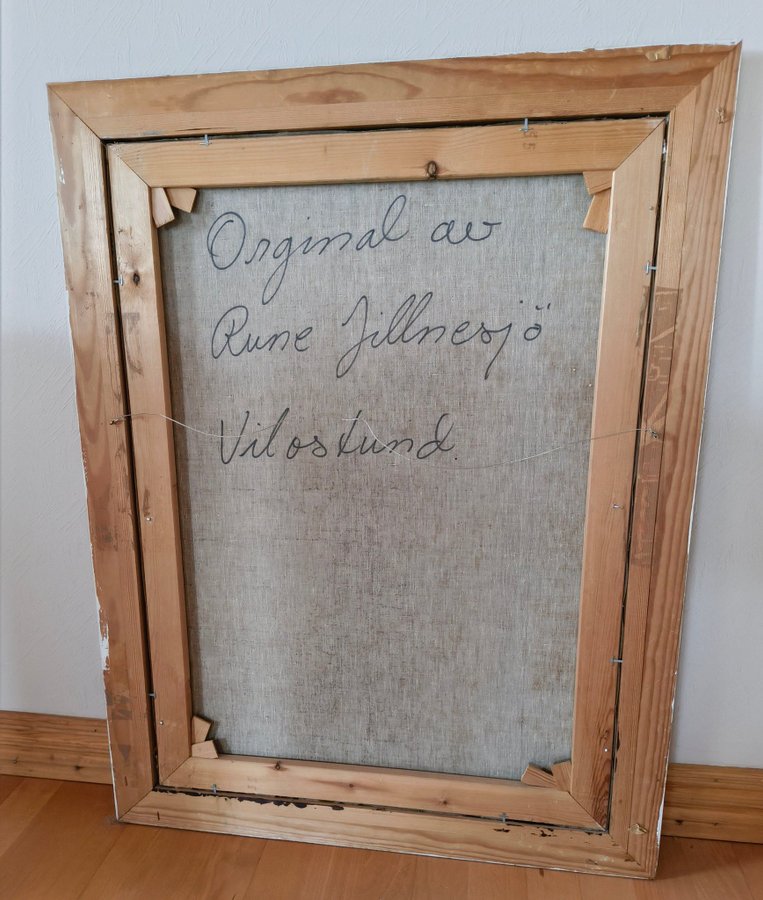 Orginal av
Rune Jillnesjö
Vilostund